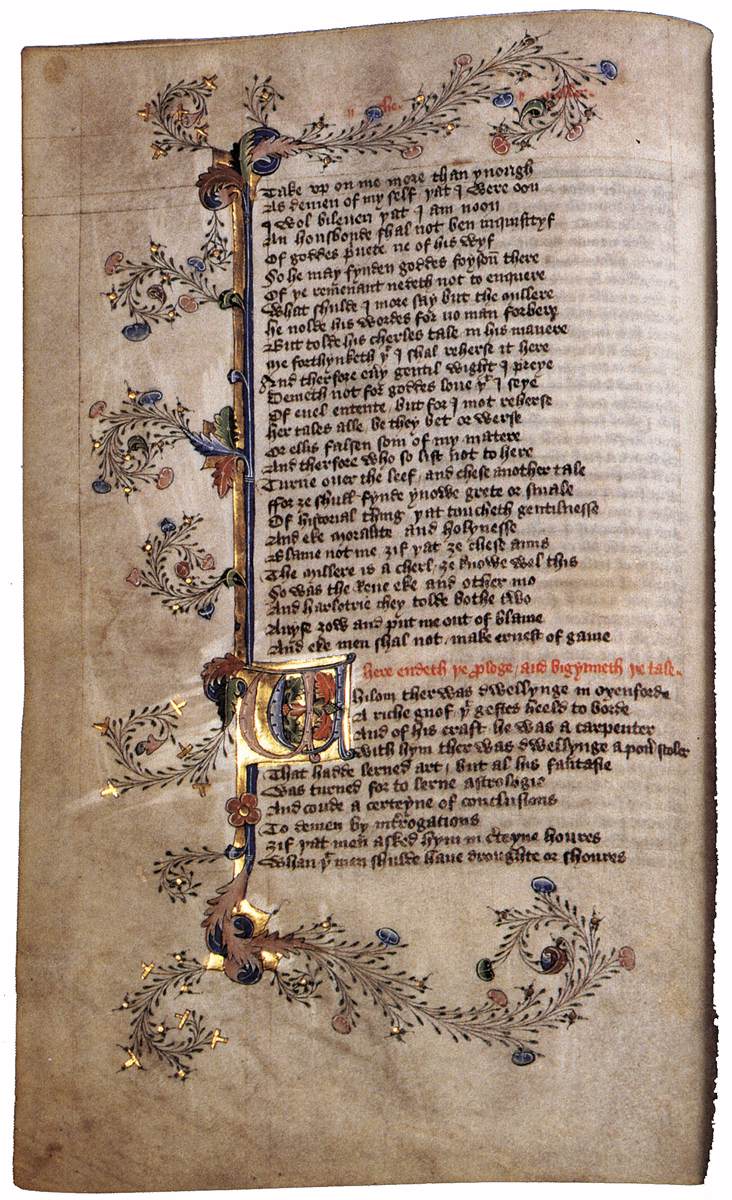 ¶ The. ¶ Millere.
Take vp on me more than ynough
As demen of my self yat I were oon
I wol bileuen yat I am noon
An housbonde shal not ben inquisityf
Of goddes p̱uete ne of his wyf
So he may fynden goddes foysoū there
Of ye remenant nedeth not to enquere
What shulde I more say but the millere
he nolde his wordes for no man forbere
But tolde his cherles tale in his manere
me forthynketh yͭ I shal reherse it here
And therfore eu̓y gentil wight I preye
Demeth not for goddes loue yͭ I seye
Of euel entente, but for I mot reherse
her tales alle, be they bet or werse
Or ellis falsen som of my matere
And therfore who so list not to here
Turne ouer the leef, and chese another tale
ffor ȝe shull fynde ynowe grete or smale
Of historial thing yat toucheth gentilnesse
And eke moralite and holynesse
Blame not me ȝif yat ȝe chese amis
The millere is a cherl, ȝe knowe wel this
So was the Reue eke and other mo
And harlotrie they tolde bothe two
Auyse ȝow and put me out of blame
And eke men shal not, make ernest of game
here endeth ye ploge, and bigynneth ye tale.
Whilom ther was dwellynge in oxenforde
A riche gnof yͭ gestes heeld to borde
And of his craft he was a carpenter
with hym ther was dwellynge a pou̓ scoler
That hadde lerned art, but al his fantasie
Was turned for to lerne astrologie
And coude a certeyne of conclusions
To demen by int̓rogations
ȝif yat men asked hym in c̓teyne houres
Whan yͭ men shulde haue droughte or shoures